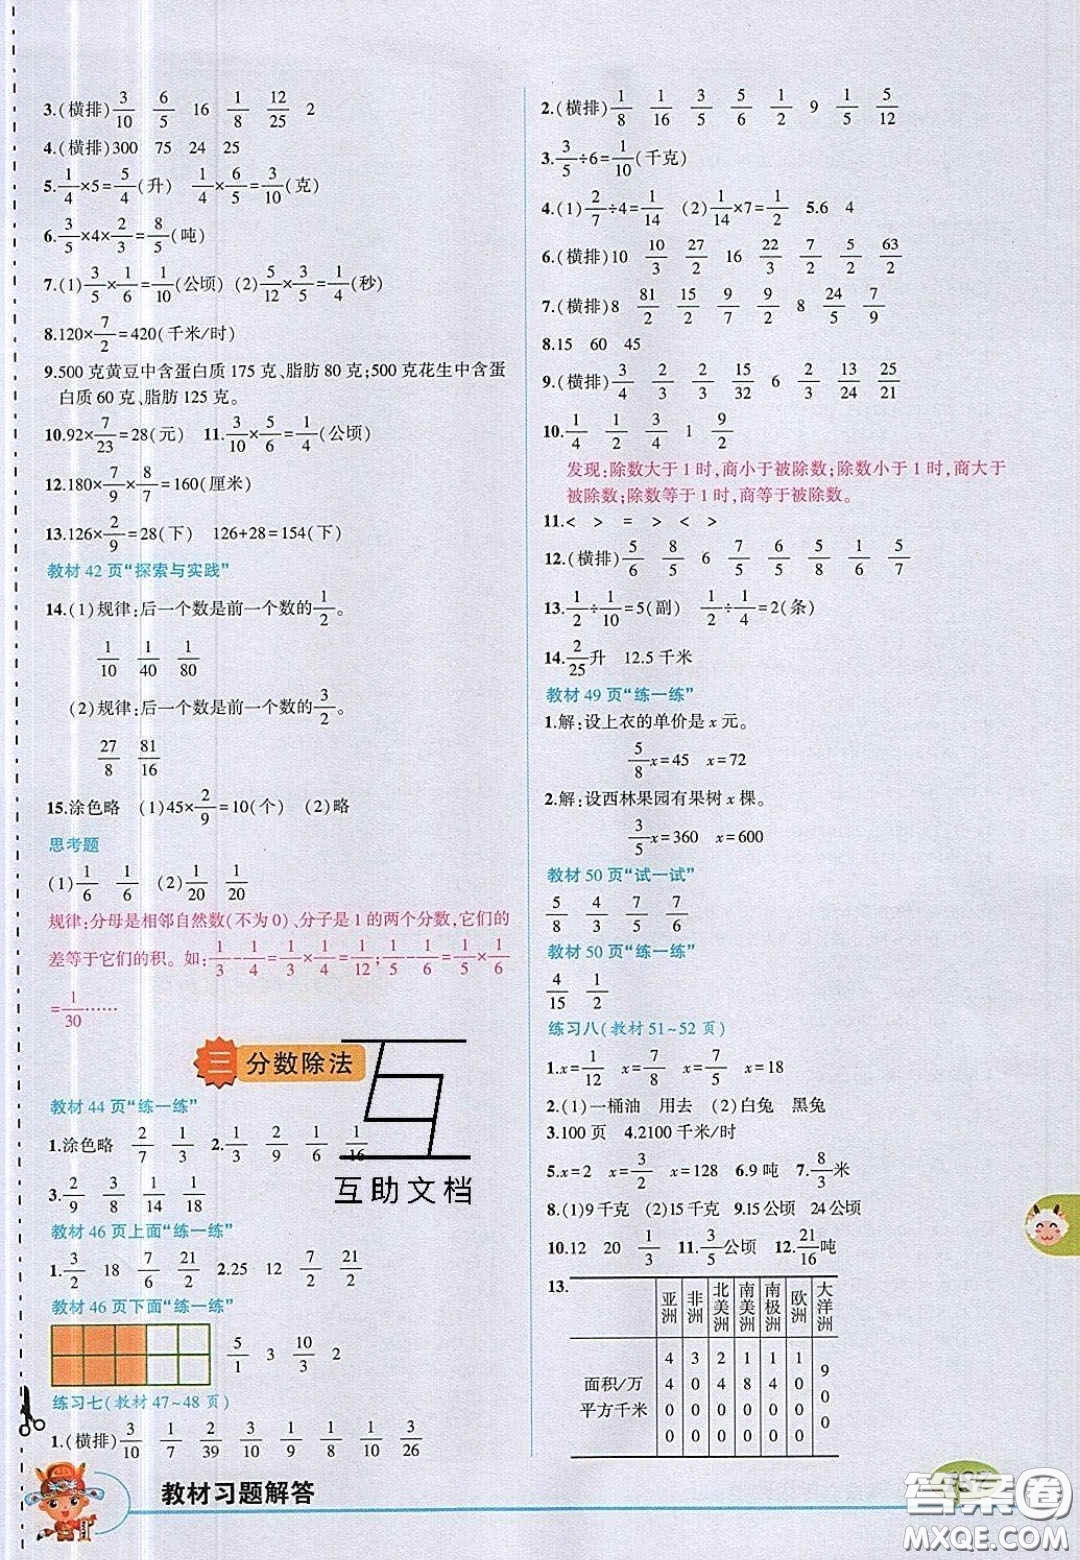 3.(横排)3/10 6/5 16 1/8 12/25 2
4.(横排)300 75 24 25
5.1/4×5=5/4(升) 1/4×6/5=3/10(克)
6.3/5×4×2/3=8/5(吨)
7.(1)3/5×1/6=1/10(公顷) (2)5/12×3/5=1/4(秒)
8.120×7/2=420(千米/时)
9.500 克黄豆中含蛋白质 175 克、脂肪 80 克;500 克花生中含蛋
白质 60 克、脂肪 125 克。
10.92×7/23=28(元) 11.3/10×5/6=1/4(公顷)
12.180×7/9×8/7=160(厘米)
13.126×2/9=28(下) 126+28=154(下)
教材 42 页“探索与实践”
14.(1)规律:后一个数是前一个数的1/2。
1/10 1/40 1/80
(2)规律:后一个数是前一个数的3/2。
27/8 81/16
15.涂色略 (1)45×2/9=10(个) (2)略
思考题
(1)1/6 1/6 (2)1/20 1/20
规律:分母是相邻自然数(不为 0)、分子是 1 的两个分数,它们的
差等于它们的积。如:1/3-1/4=1/3×1/4=1/12;1/5-1/6=1/5×1/6
=1/30……
三 分数除法
教材 44 页“练一练”
1.涂色略 2/7 1/3 2.1/3 2/9 1/6 1/16
3.2/9 3/8 1/14 1/18
教材 46 页上面“练一练”
1.3/2 18 7/6 21/2 2.25 12 7/2 21/2
教材 46 页下面“练一练”
5/1 3 10/3 2
练习七(教材 47~48 页)
1.(横排)3/10 1/7 2/39 3/10 1/9 1/8 1/10 3/26
教材习题解答
2.(横排)1/8 1/16 3/5 5/6 1/2 9 1/5 5/12
3.3/5÷6=1/10(千克)
4.(1)2/7÷4=1/14 (2)1/14×7=1/2 5.6 4
6.(横排)10 10/3 27/2 16 22/3 7/2 5/2 63/2
7.(横排)8 81/2 15/2 9/2 9/2 8 24/5 7/9
8.15 60 45
9.(横排)3/4 2/3 2/3 15/32 6 2/3 13/24 25/21
10.1/4 1/2 3/4 1 9/2
发现:除数大于 1 时,商小于被除数;除数小于 1 时,商大于
被除数;除数等于 1 时,商等于被除数。
11.< > = > < >
12.(横排)5/6 8/5 6 7/5 5/6 1/6 5/9
13.1/2÷1/10=5(副) 1/2÷1/4=2(条)
14.2/25升 12.5 千米
教材 49 页“练一练”
1.解:设上衣的单价是 x 元。
5/8x=45 x=72
2.解:设西林果园有果树 x 棵。
3/5x=360 x=600
教材 50 页“试一试”
5/8 4/3 7/5 7/6
教材 50 页“练一练”
4/15 1/2
练习八(教材 51~52 页)
1.x=1/12 x=7/8 x=7/5 x=8/7
2.(1)一桶油 用去 (2)白兔 黑兔
3.100 页 4.2100 千米/时
5.x=2 x=3/2 x=128 6.9 吨 7.8/3米
8.(1)9 千克 (2)15 千克 9.15 公顷 24 公顷
10.12 20 1/3 11.3/5公顷 12.21/16吨
13.
亚洲 非洲 北美洲 南美洲 南极洲 欧洲 大洋洲
面积/万平方千米 4400 3000 2400 1800 1400 1000 900
互助文档
答案圈
MXQE.COM